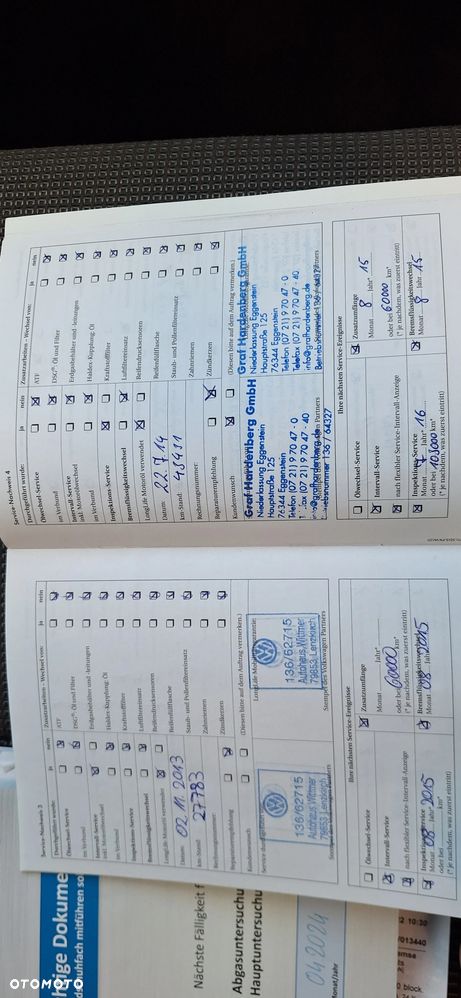 Service-Nachweis 3
Durchgeführt wurde: ja nein
Ölwechsel-Service
im Verbund
Intervall-Service
inkl. Motorölwechsel
im Verbund
Inspektions-Service
Bremsflüssigkeitswechsel
LongLife Motoröl verwendet
Datum: 02.11.2013
Km-Stand: 27783
Rechnungsnummer:
Reparaturempfehlung
Kundenwunsch
Zusatzarbeiten – Wechsel von: ja nein
ATF
DSG®: Öl und Filter
Erdgasbehälter und -leitungen
Haldex Kupplung: Öl
Kraftstofffilter
Luftfiltereinsatz
Reifendruckssensoren
Reifenfüllflasche
Staub- und Pollenfiltereinsatz
Zahnriemen
Zündkerzen
(Diesen bitte auf dem Auftrag vermerken.)
136/62715
Autohaus Wittmer
79853 Lenzkirch
136/62715
Autohaus Wittmer
79853 Lenzkirch
Stempel des Volkswagen Partners
Ihre nächsten Service-Ereignisse
Ölwechsel-Service
Intervall-Service
nach flexibler Service-Intervall-Anzeige
Inspektions-Service
Monat 08 Jahr 2015
oder bei km*
(* je nachdem, was zuerst eintritt)
Zusatzumfänge
Monat Jahr*
oder bei 60000 km*
(* je nachdem, was zuerst eintritt)
Bremsflüssigkeitswechsel
Monat 08 Jahr 2015
Service-Nachweis 4
Durchgeführt wurde: ja nein
Ölwechsel-Service
im Verbund
Intervall-Service
inkl. Motorölwechsel
im Verbund
Inspektions-Service
Bremsflüssigkeitswechsel
LongLife Motoröl verwendet
Datum: 22.7.14
Km-Stand: 45411
Rechnungsnummer:
Reparaturempfehlung
Kundenwunsch
Zusatzarbeiten – Wechsel von: ja nein
ATF
DSG®: Öl und Filter
Erdgasbehälter und -leitungen
Haldex Kupplung: Öl
Kraftstofffilter
Luftfiltereinsatz
Reifendruckssensoren
Reifenfüllflasche
Staub- und Pollenfiltereinsatz
Zahnriemen
Zündkerzen
(Diesen bitte auf dem Auftrag vermerken.)
Graf Hardenberg GmbH
Niederlassung Eggenstein
Hauptstraße 125
76344 Eggenstein
Telefon (07 21) 9 70 47 - 0
(07 21) 9 70 47 - 40
136 / 64327
Graf Hardenberg GmbH
Niederlassung Eggenstein
Hauptstraße 125
76344 Eggenstein
Telefon (07 21) 9 70 47 - 0
Telefax (07 21) 9 70 47 - 40
info@grafhardenberg.de
Ihre nächsten Service-Ereignisse
Ölwechsel-Service
Intervall-Service
nach flexibler Service-Intervall-Anzeige
Inspektions-Service
Monat 7 Jahr* 16
oder bei 105000 km*
(* je nachdem, was zuerst eintritt)
Zusatzumfänge
Monat 8 Jahr* 15
oder bei 60000 km*
(* je nachdem, was zuerst eintritt)
Bremsflüssigkeitswechsel
Monat 8 Jahr 15
htige Dokume
Nächste Fälligkeit f
Abgasuntersuchu
Hauptuntersuchu
04 2024
Monat/Jahr
10:20
/013440
0 block
OTOMOTO
OTOMOTO